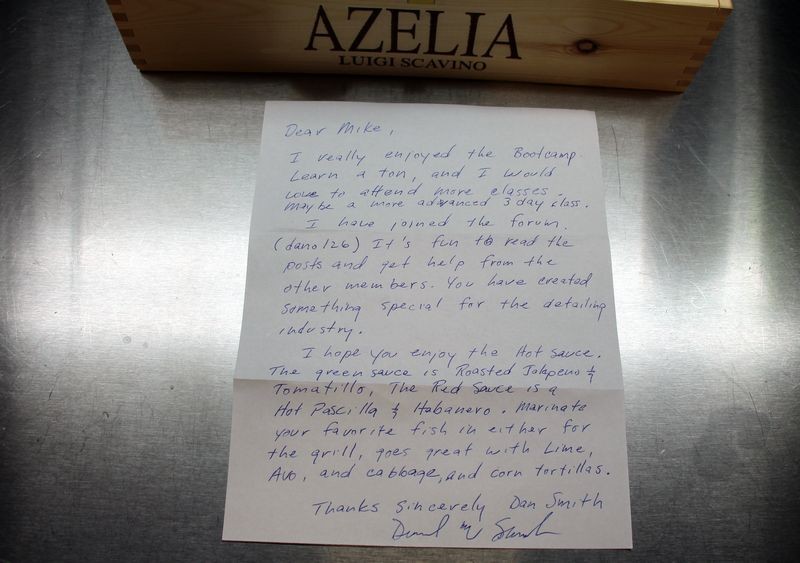 AZELIA
LUIGI SCAVINO
Dear Mike,
I really enjoyed the Bootcamp.
Learn a ton, and I would
love to attend more classes.
Maybe a more advanced 3 day class.
I have joined the forum.
(dano126) It's fun to read the
posts and get help from the
other members. You have created
something special for the detailing
industry.
I hope you enjoy the Hot sauce.
The green sauce is Roasted Jalapeno &
Tomatillo, The Red Sauce is a
Hot Pascilla & Habanero. Marinate
your favorite fish in either for
the grill, goes great with Lime,
Avo, and cabbage, and corn tortillas.
Thanks Sincerely Dan Smith